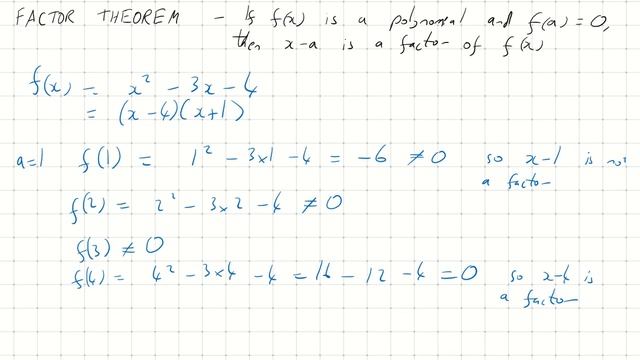 FACTOR THEOREM - If f(x) is a polynomial and f(a) = 0,
then x-a is a factor of f(x)
f(x) = x² - 3x - 4
= (x-4)(x+1)
a=1 f(1) = 1² - 3×1 - 4 = -6 ≠ 0 so x-1 is not
a factor
f(2) = 2² - 3×2 - 4 ≠ 0
f(3) ≠ 0
f(4) = 4² - 3×4 - 4 = 16 - 12 - 4 = 0 so x-4 is
a factor